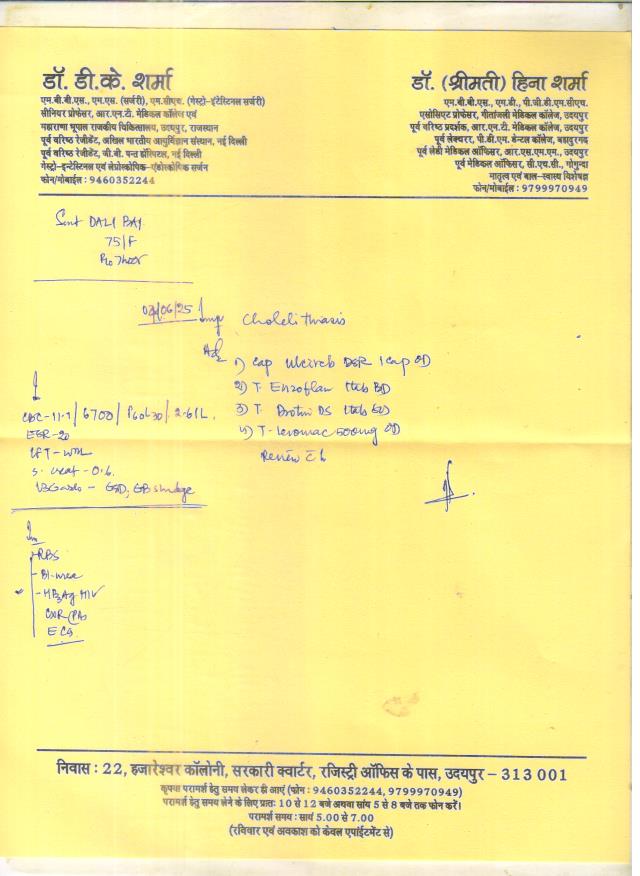 डॉ. डी.के. शर्मा
एम.बी.बी.एस., एम.एस. (सर्जरी), एम.सीएच. (गेस्ट्रो-इंटेस्टिनल सर्जरी)
सीनियर प्रोफेसर, आर.एन.टी. मेडिकल कॉलेज एवं
महाराणा भूपाल राजकीय चिकित्सालय, उदयपुर, राजस्थान
पूर्व वरिष्ठ रेजीडेंट, अखिल भारतीय आयुर्विज्ञान संस्थान, नई दिल्ली
पूर्व वरिष्ठ रेजीडेंट, जी.बी. पन्त हॉस्पिटल, नई दिल्ली
गेस्ट्रो-इन्टेस्टिनल एवं लेप्रोस्कोपिक-एंडोस्कोपिक सर्जन
फोन/मोबाईल : 9460352244
डॉ. (श्रीमती) हिना शर्मा
एम.बी.बी.एस., एम.डी., पी.जी.डी.एम.सीएच.
एसोसिएट प्रोफेसर, गीतांजली मेडिकल कॉलेज, उदयपुर
पूर्व वरिष्ठ प्रदर्शक, आर.एन.टी. मेडिकल कॉलेज, उदयपुर
पूर्व लेक्चरर, पी.डी.एम. डेन्टल कॉलेज, बहादुरगढ़
पूर्व लेडी मेडिकल ऑफिसर, आर.एस.एम.एम., उदयपुर
पूर्व मेडिकल ऑफिसर, सी.एच.सी., गोगुन्दा
मातृत्व एवं बाल-स्वास्थ्य विशेषज्ञ
फोन/मोबाईल : 9799970949
DALI BAY
75/F
/06/25 Cholelithiasis
1) Cap DSR 1 cap OD
2) T. Enzoflam 1 tab BD
3) T. DS 1 tab
4) T- 500mg OD
Review
CBC-11.1/6700/
ESR-20
LFT-WNL
S. creat-0.6
- GSD, GB sludge
-RBS
-Bl-urea
-HBsAg HIV
CXR (PA)
ECG
निवास : 22, हजारेश्वर कॉलोनी, सरकारी क्वार्टर, रजिस्ट्री ऑफिस के पास, उदयपुर – 313 001
कृपया परामर्श हेतु समय लेकर ही आएं (फोन : 9460352244, 9799970949)
परामर्श हेतु समय लेने के लिए प्रातः 10 से 12 बजे अथवा सांय 5 से 8 बजे तक फोन करें।
परामर्श समय : सायं 5.00 से 7.00
(रविवार एवं अवकाश को केवल एपांईटमेंट से)